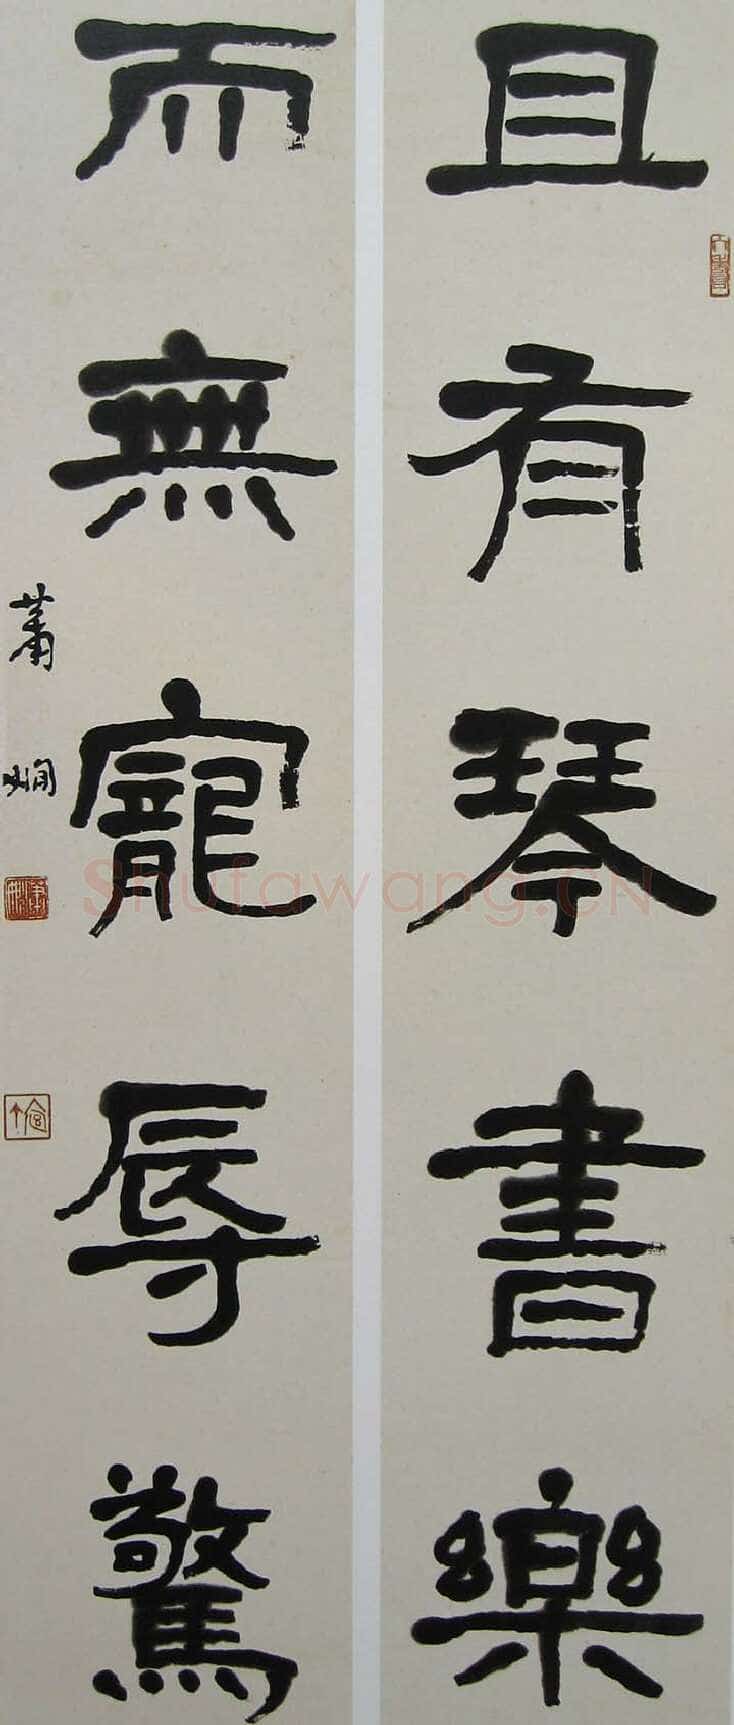 且有琴書樂
而無寵辱驚
蕭嫻
Shufawang.CN